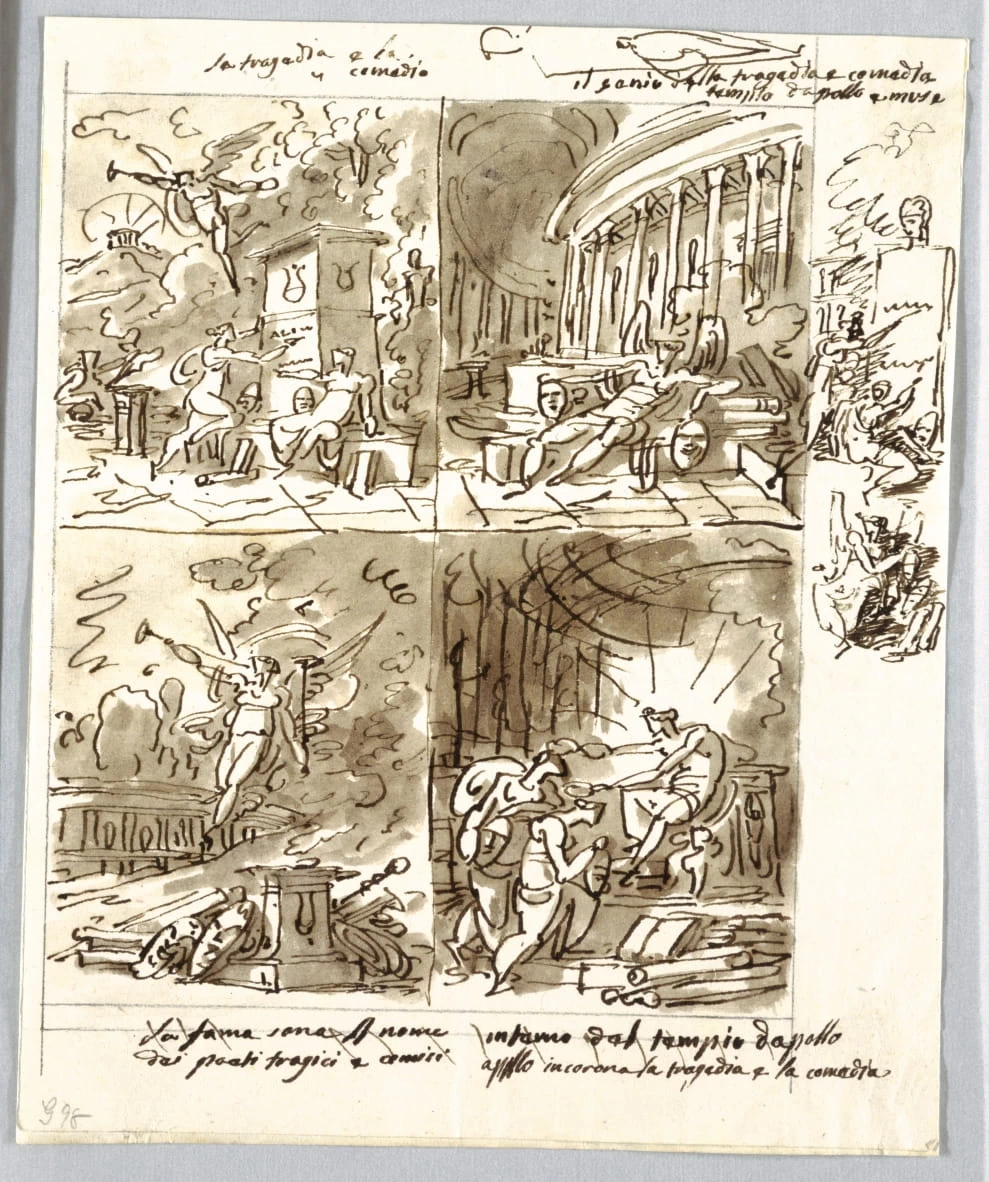 la tragedia e la
comedia
il genio della tragedia e comedia
tempio dapollo e muse
la fama sona il nome
dei poeti tragici e comici
interno del tempio dapollo
apollo incorona la tragedia e la comedia